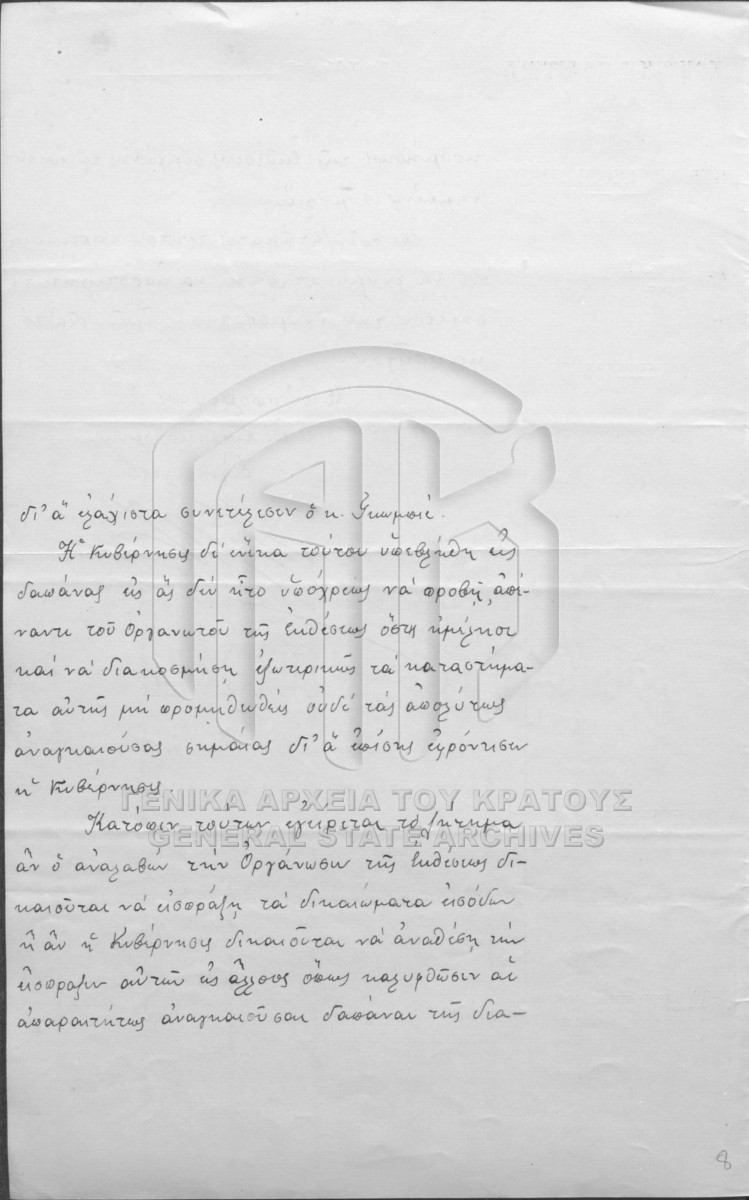 δι' ἃ ἐλάχιστα συνετέλεσεν ὁ κ. Γκωμπιέ.
Ἡ Κυβέρνησις δι' ἕνεκα τούτου ὑπεβλήθη εἰς
δαπάνας εἰς ἃς δὲν ἦτο ὑπόχρεως νὰ προβῇ ἀπέ-
ναντι τοῦ Ὀργανωτοῦ τῆς Ἐκθέσεως ὅστις ἠμέλησε
καὶ νὰ διακοσμήσῃ ἐξωτερικῶς τὰ καταστήμα-
τα αὐτῆς μὴ προμηθευθεὶς οὐδὲ τὰς ἀπολύτως
ἀναγκαιούσας σημαίας δι' ἃ ἐπίσης ἐφρόντισεν
ἡ Κυβέρνησις.
Κατόπιν τούτων ἐγείρεται τὸ ζήτημα
ἂν ὁ ἀναλαβὼν τὴν Ὀργάνωσιν τῆς Ἐκθέσεως δι-
καιοῦται νὰ εἰσπράξῃ τὰ δικαιώματα εἰσόδων
ἢ ἂν ἡ Κυβέρνησις δικαιοῦται νὰ ἀναθέσῃ τὴν
εἴσπραξιν αὐτῶν εἰς ἄλλους ὅπως καλυφθῶσιν αἱ
ἀπαραιτήτως ἀναγκαιοῦσαι δαπάναι τῆς δια-
ΓΕΝΙΚΑ ΑΡΧΕΙΑ ΤΟΥ ΚΡΑΤΟΥΣ
GENERAL STATE ARCHIVES
8